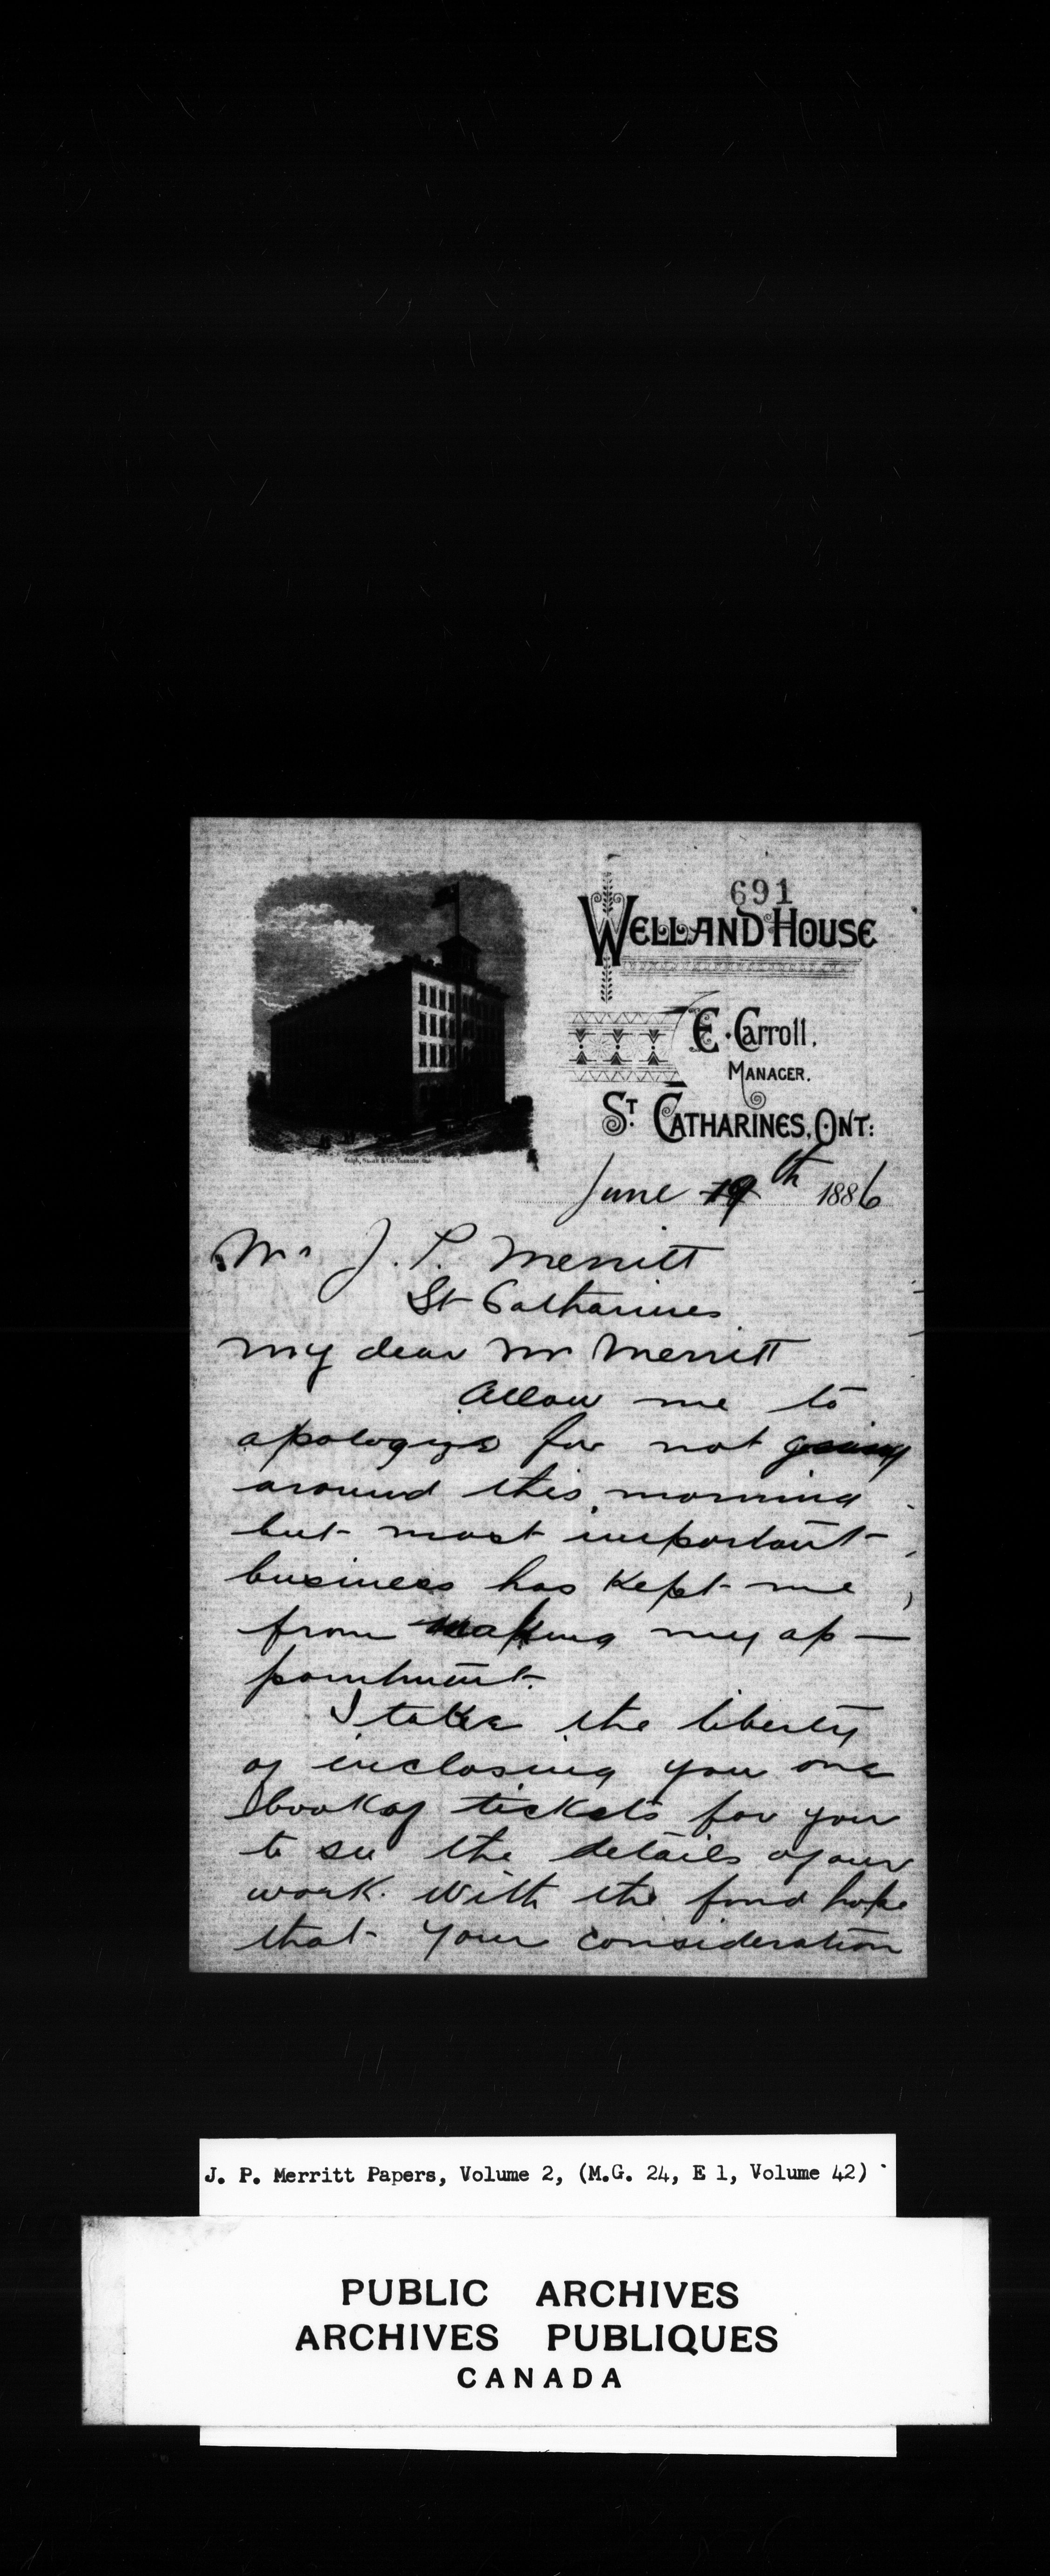 691
WELLAND HOUSE
E. Carroll,
MANAGER.
ST. CATHARINES, ONT:
June 19th 1886
Mr J. P. Merritt
St Catharines
My dear Mr Merritt
Allow me to
apologize for not going
around this morning
but most important
business has kept me
from making my ap—
pointment.
I take the liberty
of inclosing you one
book of tickets for you
to see the details of our
work. With the fond hope
that your consideration
J. P. Merritt Papers, Volume 2, (M.G. 24, E 1, Volume 42)
PUBLIC ARCHIVES
ARCHIVES PUBLIQUES
CANADA